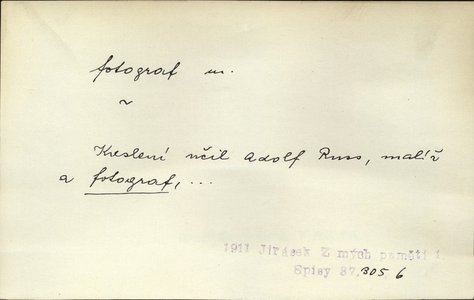 fotograf m.
~
Kreslení učil Adolf Russ, malíř
a fotograf, ...
1911 Jirásek Z mých pamětí 1.
Spisy 37, 305 6